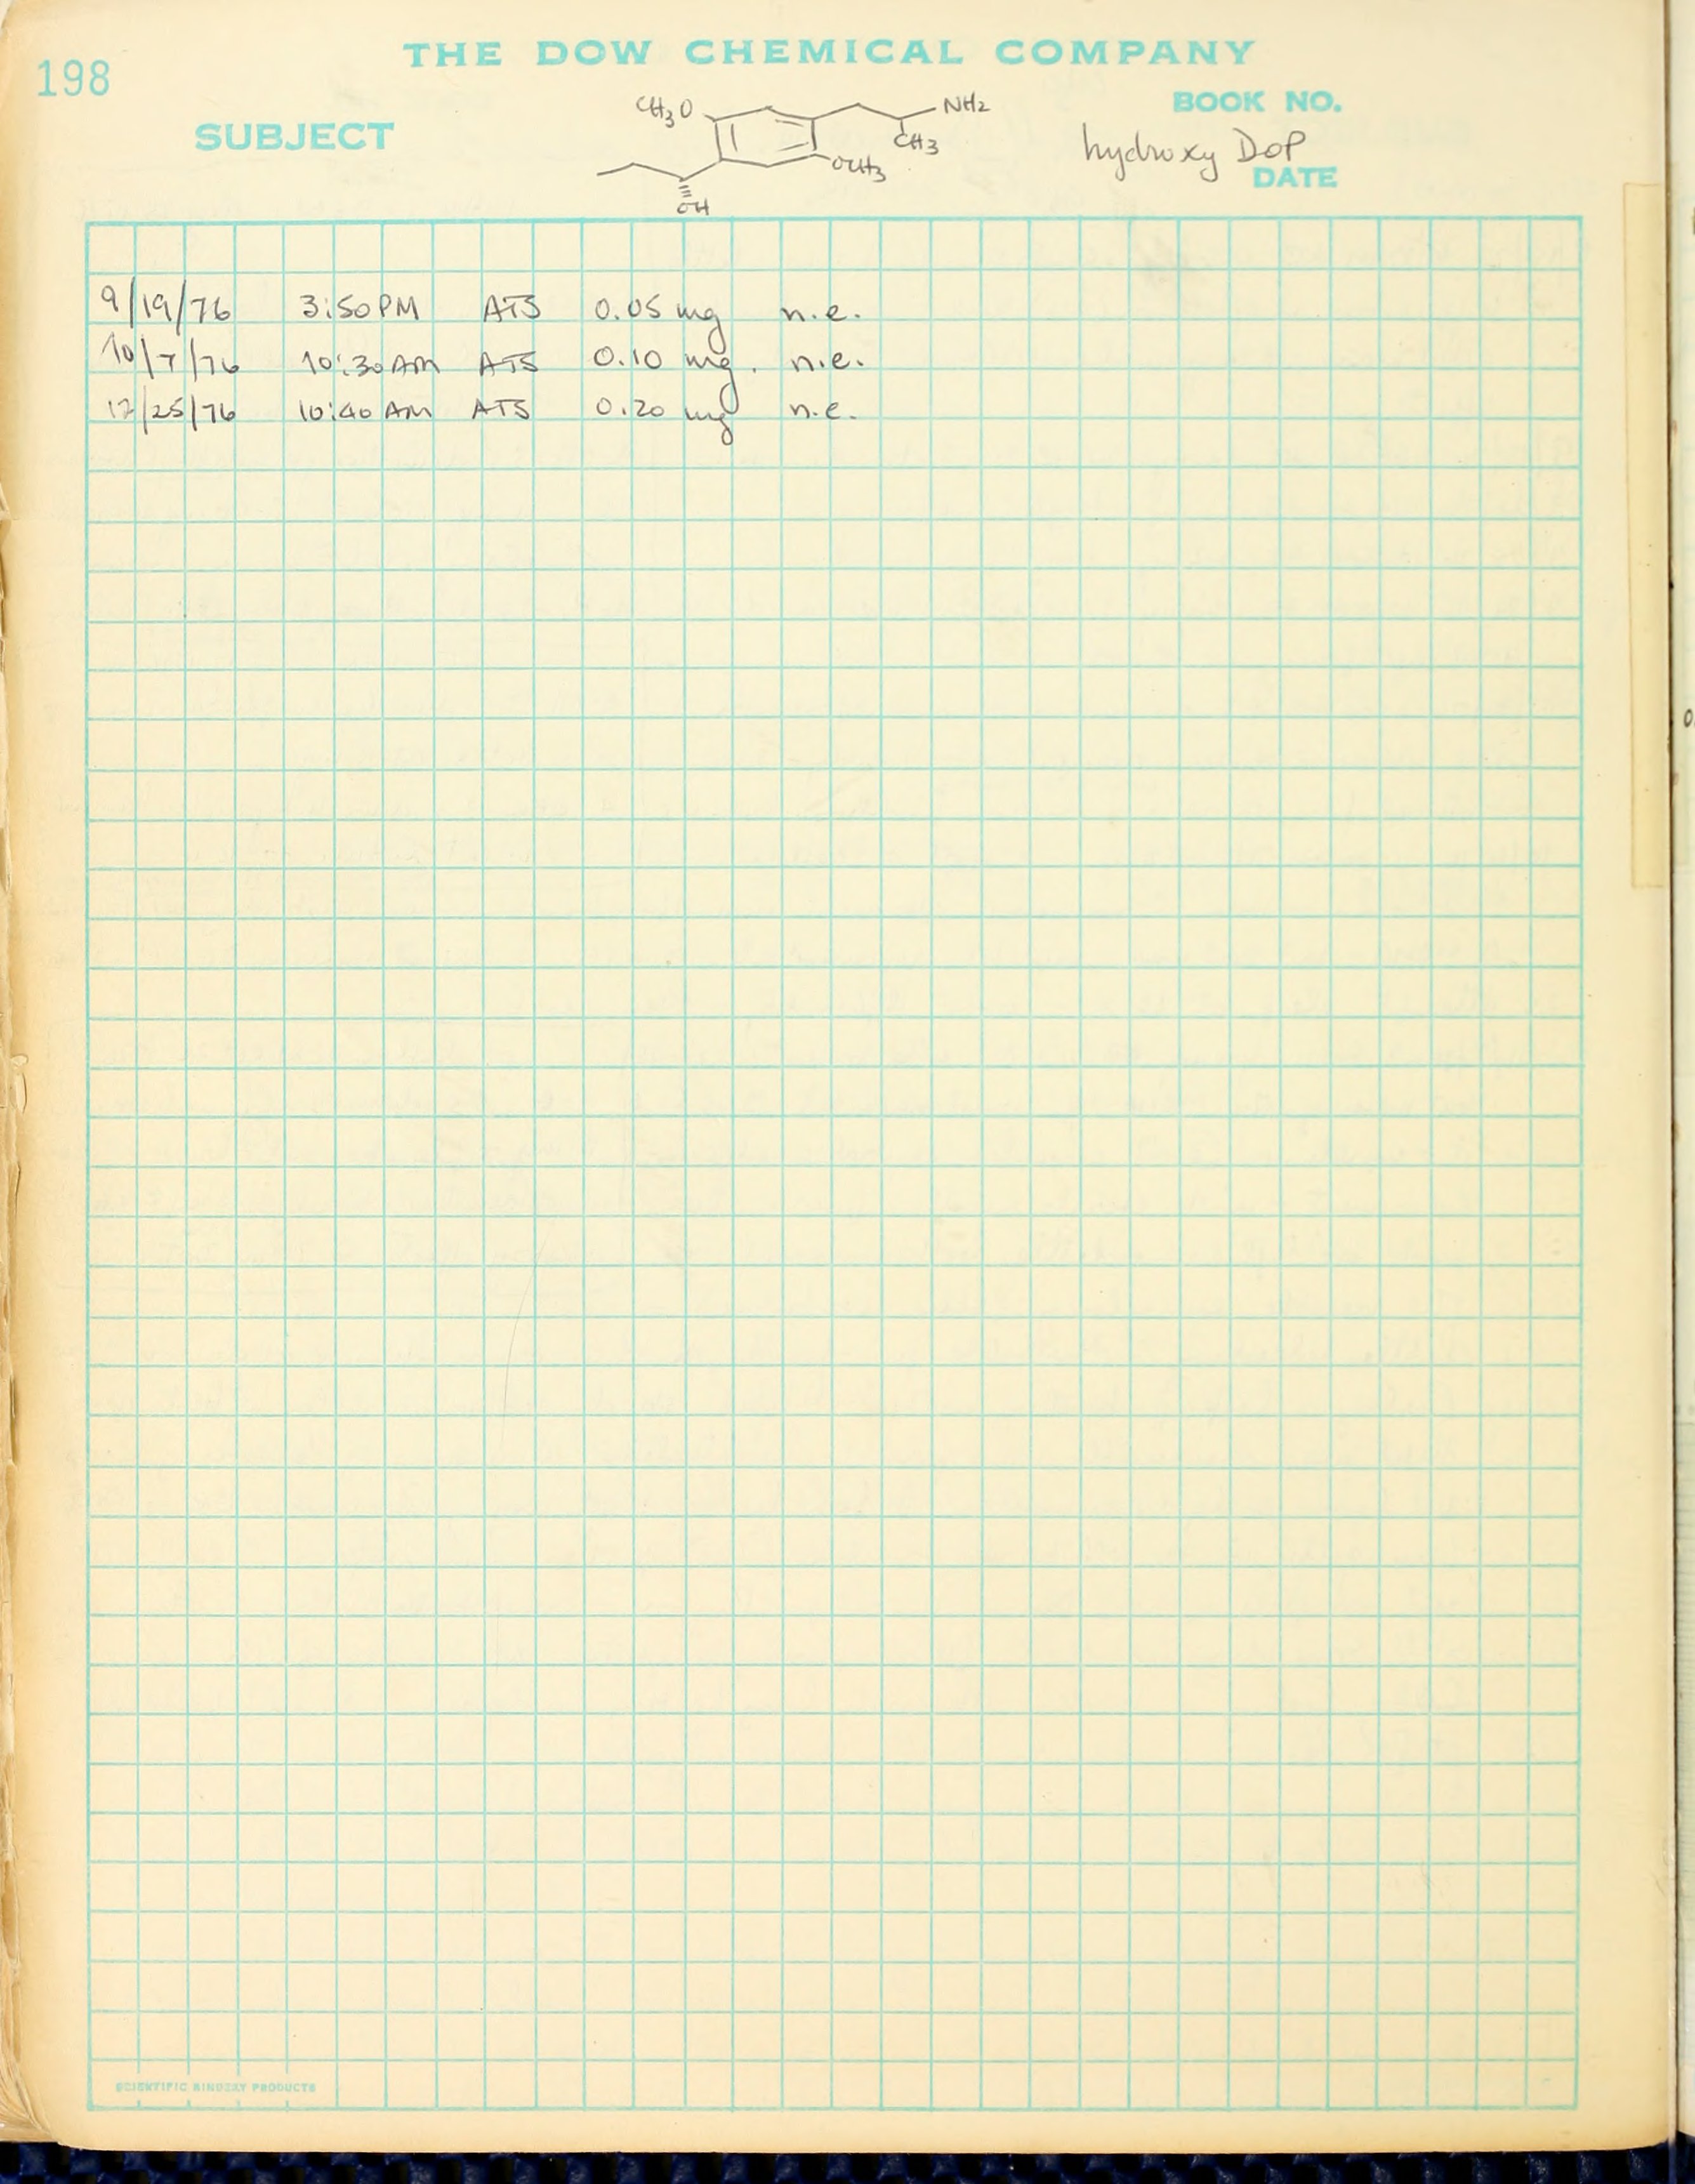 198
THE DOW CHEMICAL COMPANY
SUBJECT
BOOK NO.
DATE
CH3O
NH2
CH3
OCH3
OH
hydroxy DOP
9/19/76 3:50 PM ATS 0.05 mg n.e.
10/7/76 10:30 AM ATS 0.10 mg. n.e.
12/25/76 10:40 AM ATS 0.20 mg n.e.
SCIENTIFIC BINDERY PRODUCTS